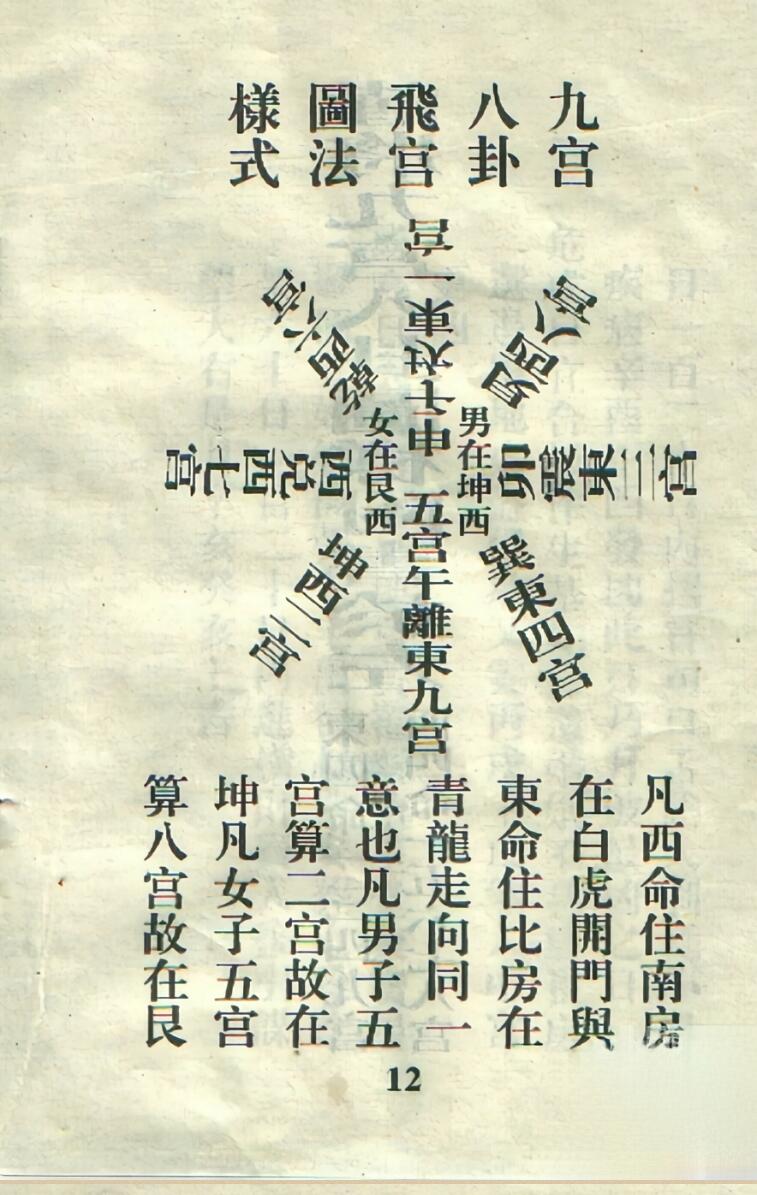 九宫
八卦
飛宫
圖法
樣式
子坎東一宫
艮西八宫
卯震東三宫
巽東四宫
中五宫
午離東九宫
坤西二宫
酉兌西七宫
乾西六宫
男在坤西
女在艮西
凡西命住南房
在白虎開門與
東命住比房在
青龍走向同一
意也凡男子五
宫算二宫故在
坤凡女子五宫
算八宫故在艮
12